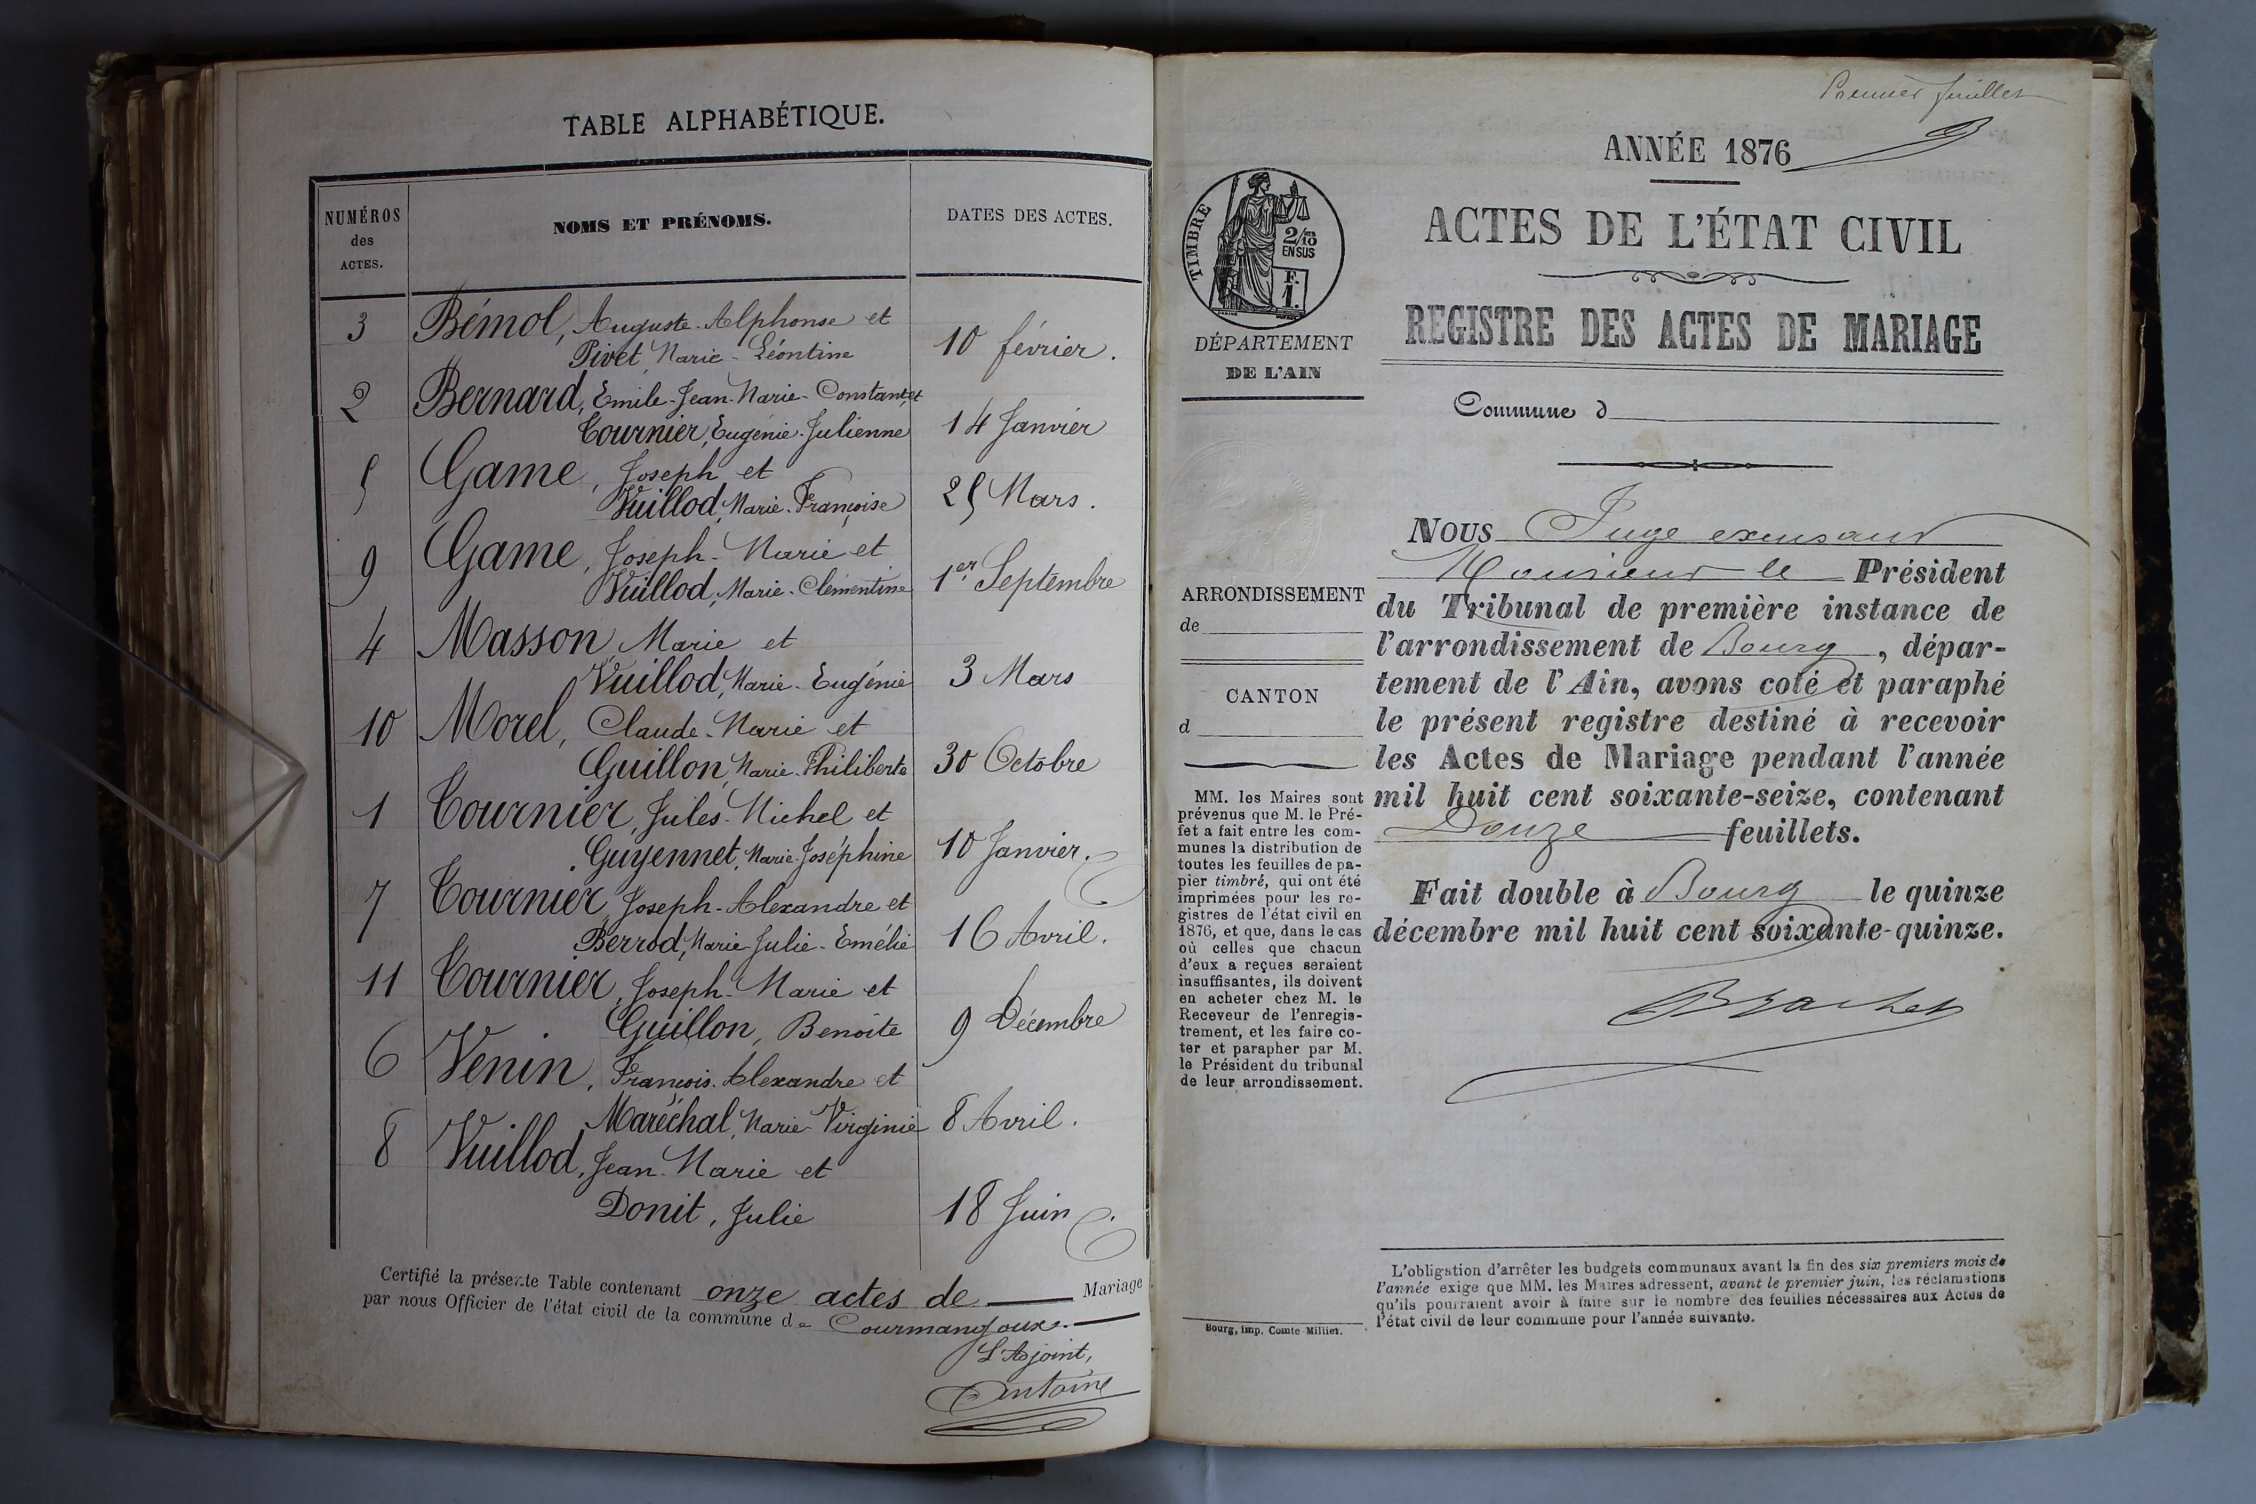 TABLE ALPHABÉTIQUE.
NUMÉROS
des
ACTES.
NOMS ET PRÉNOMS.
DATES DES ACTES.
3 Bémol, Auguste-Alphonse et
Pivet, Marie-Léontine 10 février.
2 Bernard, Emile-Jean-Marie-Constant, et
Tournier, Eugénie-Julienne 14 Janvier
5 Game, Joseph et
Vuillod, Marie-Françoise 25 Mars.
9 Game, Joseph-Marie et
Vuillod, Marie-Clémentine 1er Septembre
4 Masson Marie et
Vuillod, Marie-Eugénie 3 Mars
10 Morel, Claude-Marie et
Guillon, Marie-Philiberte 30 Octobre
1 Tournier, Jules-Michel et
Guyennet, Marie-Joséphine 10 Janvier.
7 Tournier, Joseph-Alexandre et
Berrod, Marie-Julie-Emélie 16 Avril.
11 Tournier, Joseph-Marie et
Guillon, Benoite 9 Décembre
6 Venin, François-Alexandre et
Maréchal, Marie-Virginie 8 Avril.
8 Vuillod, Jean-Marie et
Donit, Julie 18 Juin.
Certifié la présente Table contenant onze actes de Mariage
par nous Officier de l'état civil de la commune de Courmangoux.
L'Adjoint,
Antoine
Premier feuillet
ANNÉE 1876
ACTES DE L'ÉTAT CIVIL
REGISTRE DES ACTES DE MARIAGE
TIMBRE
2/10
EN SUS
F.
1.
DÉPARTEMENT
DE L'AIN
Commune d
ARRONDISSEMENT
de
CANTON
d
MM. les Maires sont
prévenus que M. le Pré-
fet a fait entre les com-
munes la distribution de
toutes les feuilles de pa-
pier timbré, qui ont été
imprimées pour les re-
gistres de l'état civil en
1876, et que, dans le cas
où celles que chacun
d'eux a reçues seraient
insuffisantes, ils doivent
en acheter chez M. le
Receveur de l'enregis-
trement, et les faire co-
ter et parapher par M.
le Président du tribunal
de leur arrondissement.
Bourg, imp. Comte-Milliet.
NOUS Juge excusant
Monsieur le Président
du Tribunal de première instance de
l'arrondissement de Bourg, dépar-
tement de l'Ain, avons coté et paraphé
le présent registre destiné à recevoir
les Actes de Mariage pendant l'année
mil huit cent soixante-seize, contenant
Douze feuillets.
Fait double à Bourg le quinze
décembre mil huit cent soixante-quinze.
L'obligation d'arrêter les budgets communaux avant la fin des six premiers mois de
l'année exige que MM. les Maires adressent, avant le premier juin, les réclamations
qu'ils pourraient avoir à faire sur le nombre des feuilles nécessaires aux Actes de
l'état civil de leur commune pour l'année suivante.